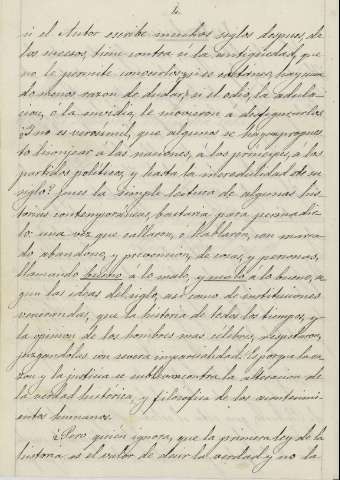 4.
si el Autor escribe muchos siglos despues, de
los sucesos, tiene contra sí la antigüedad, que
no le permite conocerlos; si es extraneo, hay una
do menos razon de dudar; si el odio, la adula-
cion, o la envidia, le movieron a desfigurarlos
¿Y no es verosimil, que algunos se hayan propues
to lisonjear á las naciones, á los príncipes, á los
partidos políticos, y hasta la incredulidad de su
siglo? Pues la simple lectura de algunas his
torias contemporáneas, bastaria para persuadir
lo: una vez que callaron, ó hablaron, con marca
do abandono, y prevencion, de cosas, y personas,
llamando bueno a lo malo, y malo á lo bueno, se
gun las ideas del siglo, asi como de instituciones
venerandas, que la historia de todos los tiempos, y
la opinion de los hombres mas célebres, respetaron,
juzgandolas con severa imparcialidad. Es porque la ra
zon y la justicia se sublevan contra la alteracion de
la verdad histórica, y filosófica de los acontecimi
entos humanos.
¿Pero quién ignora, que la primera ley de la
historia es el valor de decir la verdad y no la